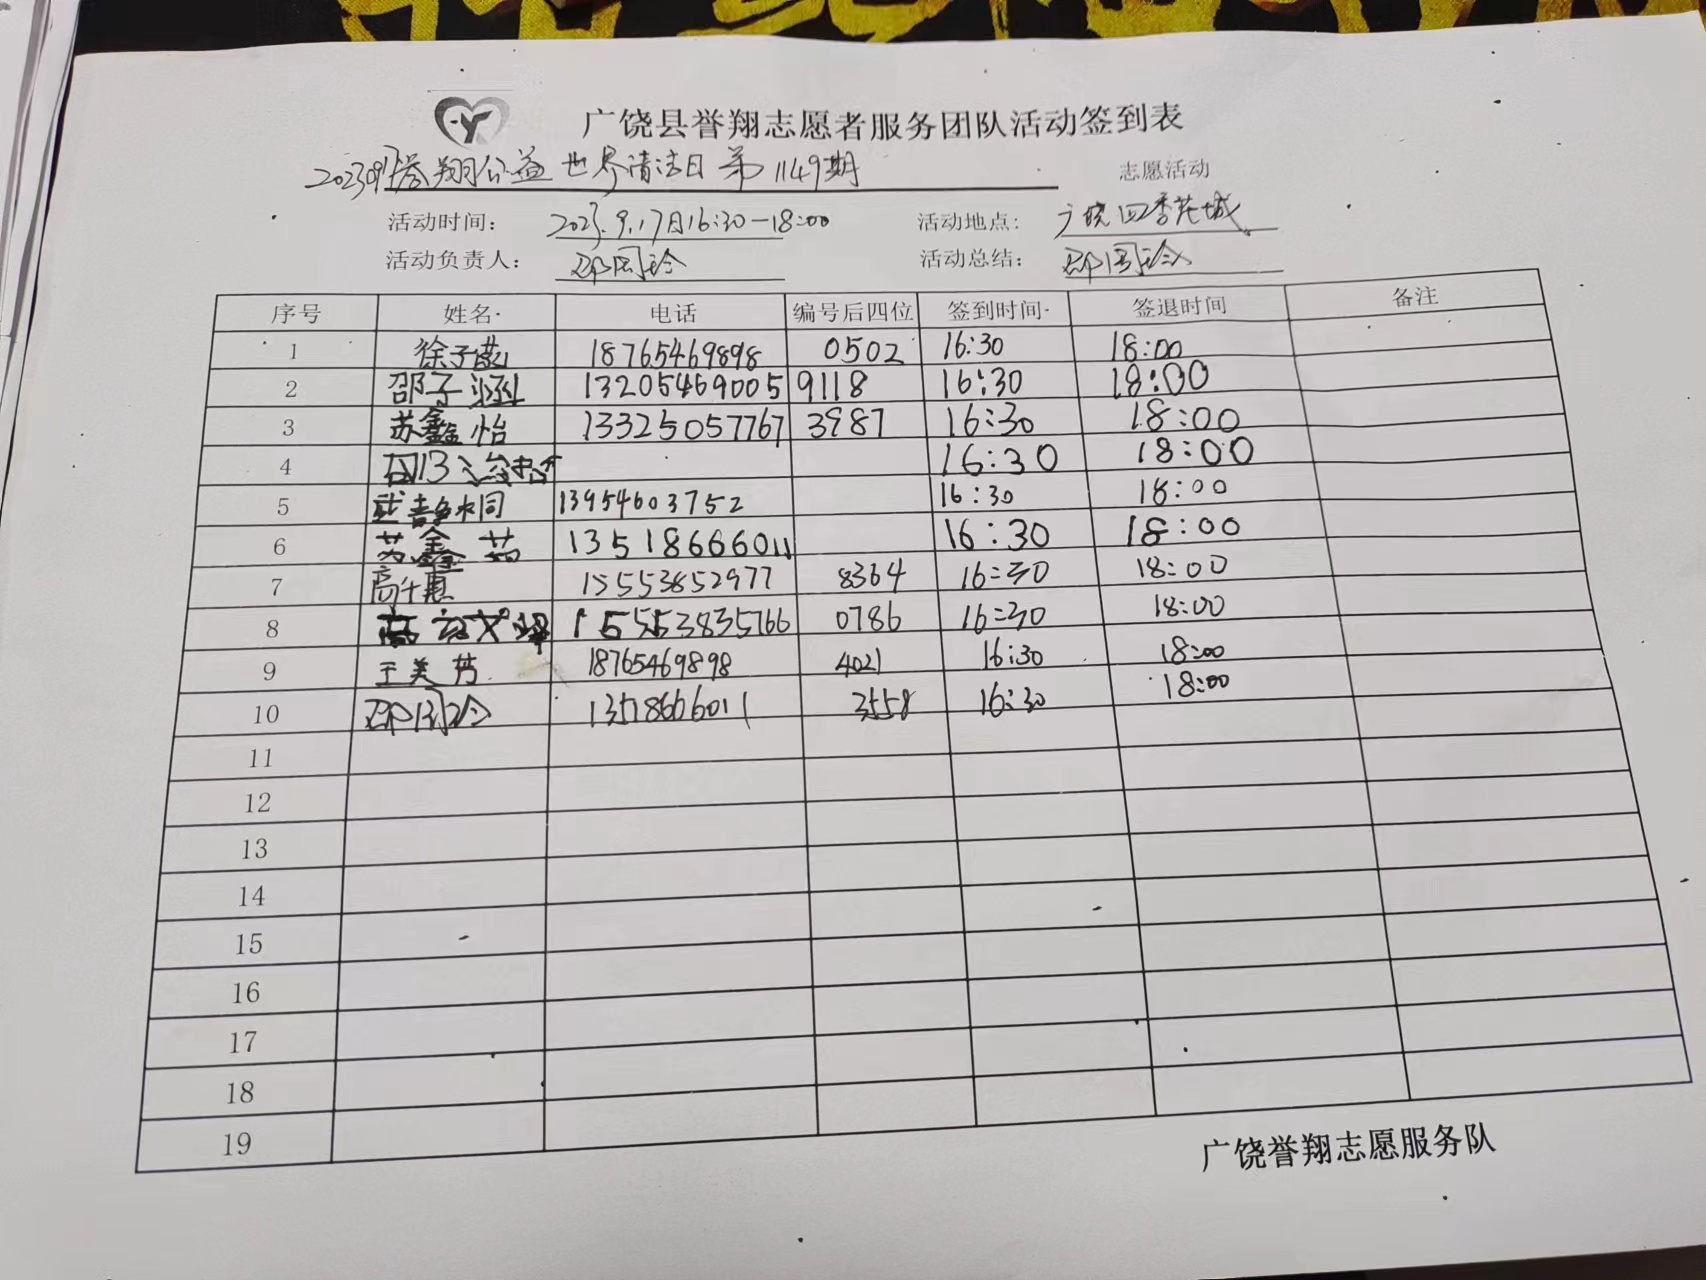 广饶县誉翔志愿者服务团队活动签到表
誉翔公益 世界清洁日 第1149期 志愿活动
活动时间: 2023.9.17日16:30-18:00 活动地点: 广饶四季花城
活动负责人: 活动总结:
序号 姓名 电话 编号后四位 签到时间 签退时间 备注
1 徐子 18765469898 0502 16:30 18:00
2 邵子涵 13205469005 9118 16:30 18:00
3 苏鑫怡 13325057767 3987 16:30 18:00
4 16:30 18:00
5 13954603752 16:30 18:00
6 鑫 13518666011 16:30 18:00
7 高千惠 15553852977 8364 16:30 18:00
8 高 15553835766 0786 16:30 18:00
9 王美芳 18765469898 4021 16:30 18:00
10 13518666011 3558 16:30 18:00
11
12
13
14
15
16
17
18
19
广饶誉翔志愿服务队